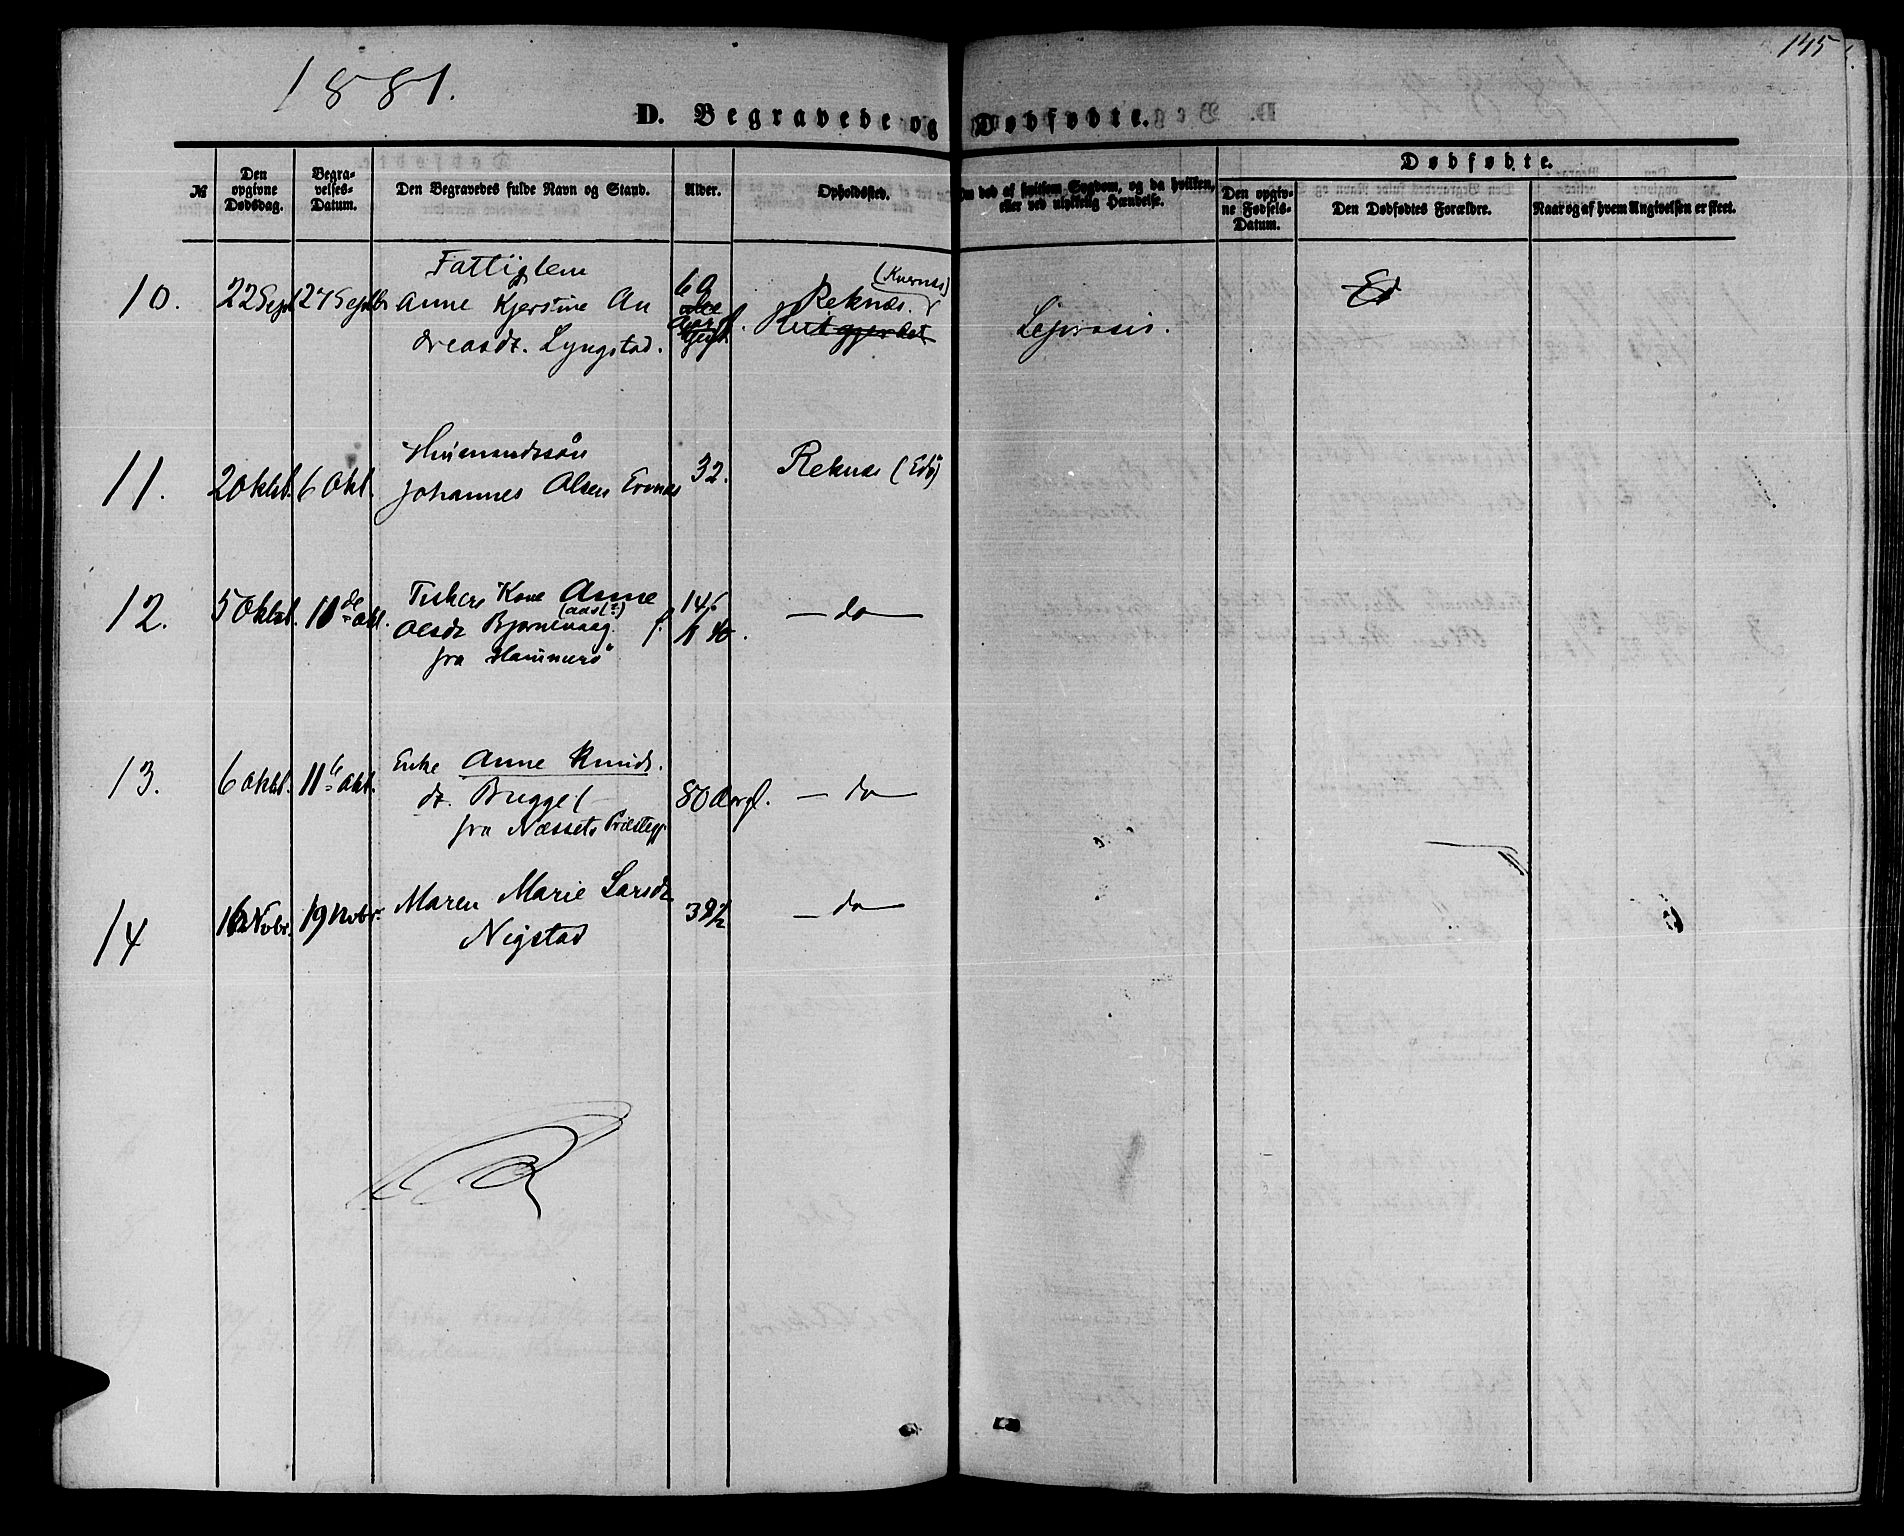 145
1881.
D. Begravede og Dødfødte.
Dødfødte.
№
Den opgivne Dødsdag.
Begravelses-Datum.
Den Begravedes fulde Navn og Stand.
Alder.
Opholdssted.
Om død af hvilken Sygdom, og da hvilken, eller ved ulykkelig Hændelse.
Den opgivne Fødsels-Datum.
Den Dødfødtes Forældre.
Naar og af hvem Angivelsen er skeet.
10.
22 Sept
27 Septbr
Fattiglem
Anne Kjerstine An
dreasdr. Lyngstad.
69
(Kvernes)
Reknæs.
Leprosis.
11.
2 Oktbr.
6 Okt.
Johannes Olsen
32.
Reknæs (Edö)
12.
5 Oktbr.
10 de Okt.
Fiskers Kone Anne
Olsdr Bjørnevaag
fra Hammerö
f.
14/6
— do —
13.
6 Oktbr.
11 Okt.
Enke Anne Knuds
dr. Bugge
fra Næssets Præstegj.
80 Aar gl.
— do —
14
16 Novbr.
19 Novbr.
Maren Marie Larsdr
Nigstad
38½
— do —